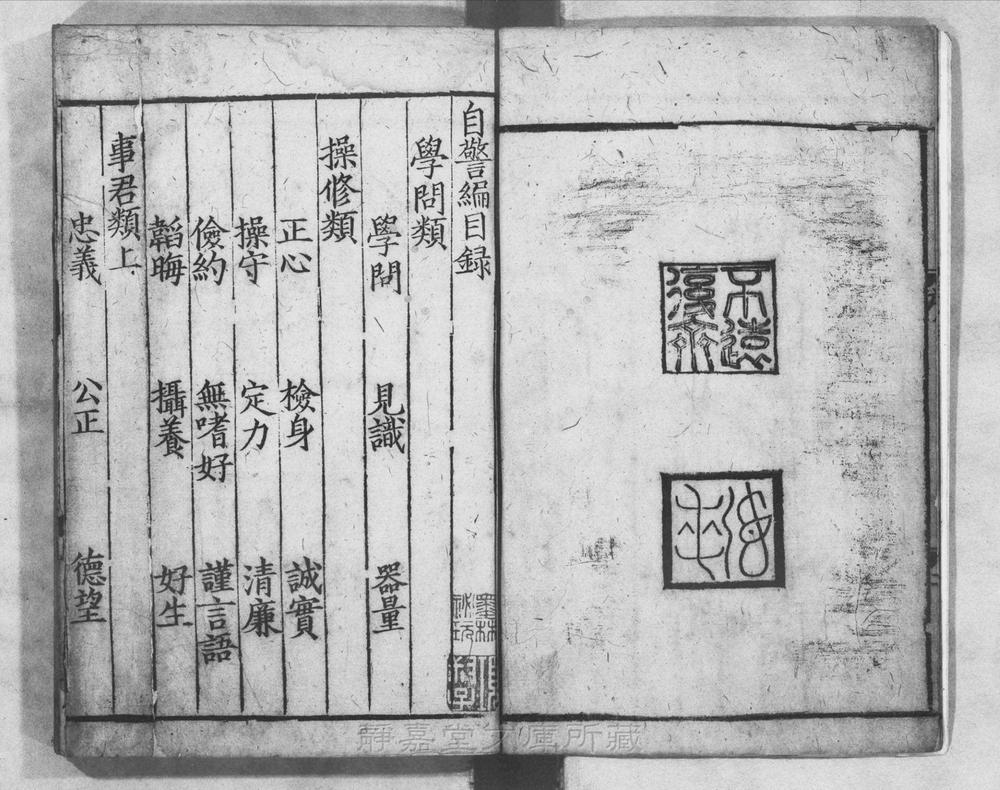 不遠復齋
自警編目録
學問類
學問 見識 器量
操修類
正心 檢身 誠實
操守 定力 清廉
儉約 無嗜好 謹言語
韜晦 攝養 好生
事君類上
忠義 公正 德望
墨林祕玩
靜嘉堂文庫所藏